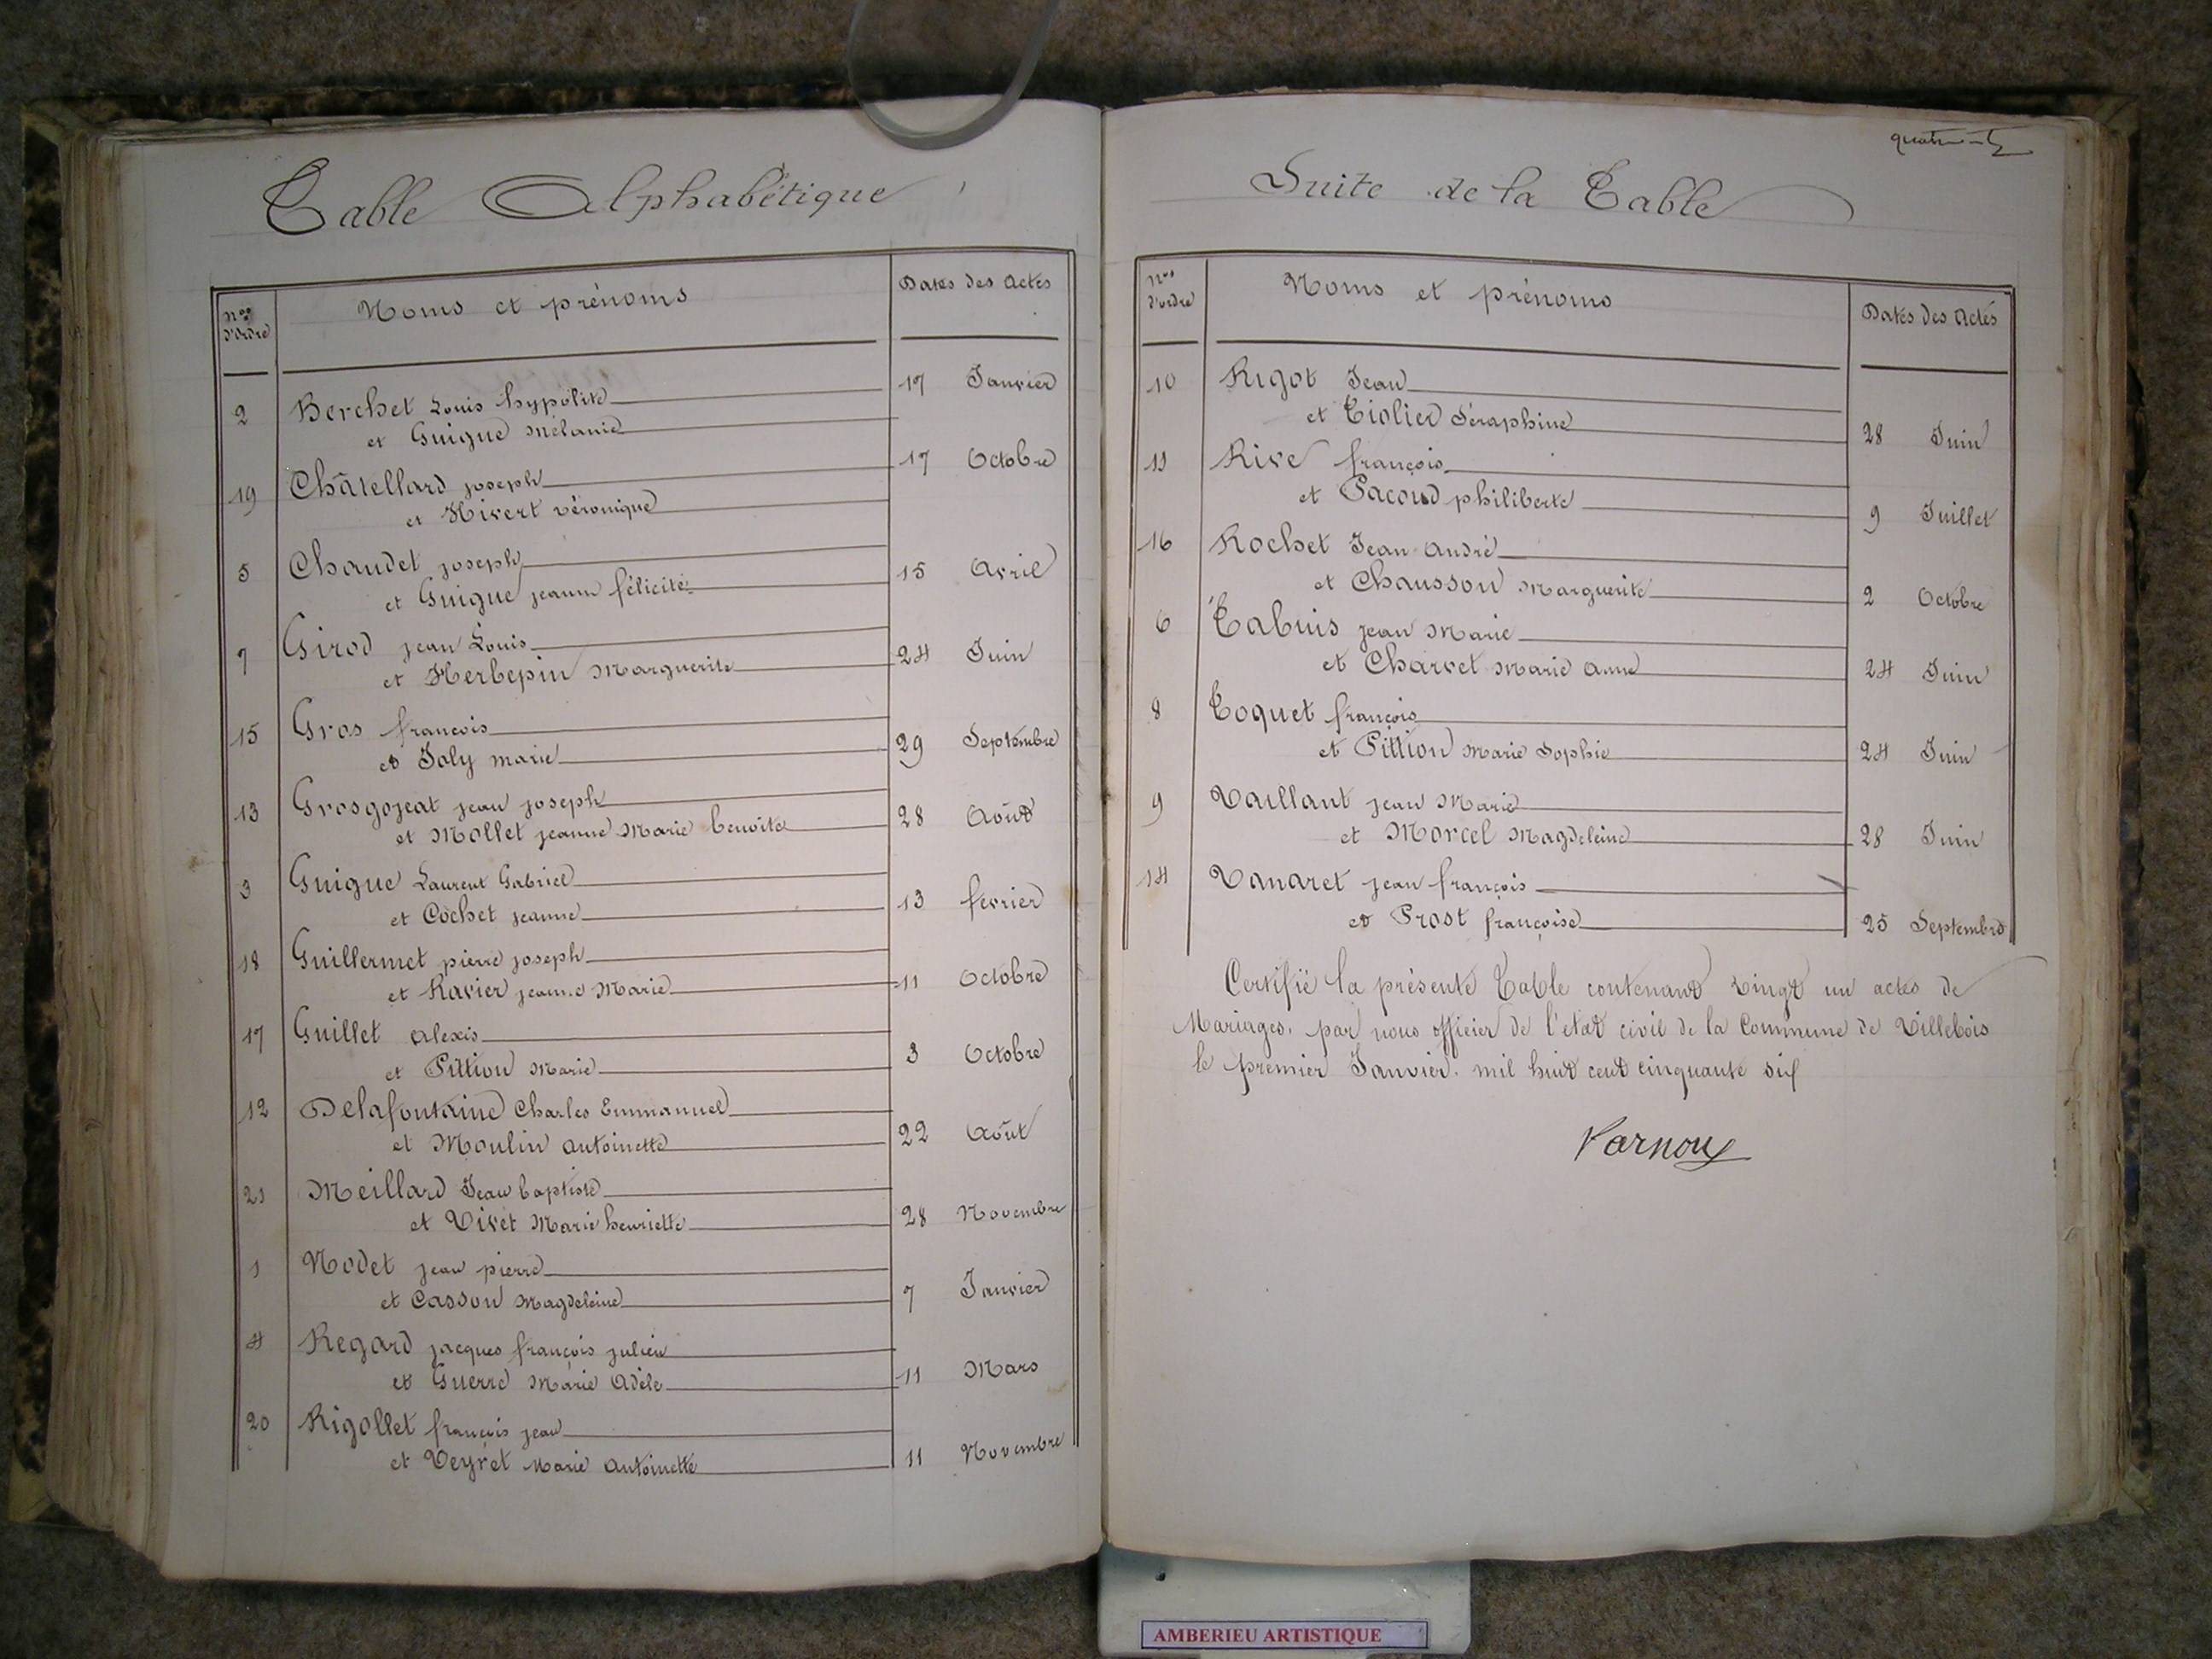 Table Alphabétique
Nos d'Ordre Noms et prénoms Dates des Actes
2 Berchet Louis hypolite 17 Janvier
et Guigue Mélanie
19 Châtellard joseph 17 Octobre
et Hivert véronique
5 Chaudet joseph
et Guigue jeanne félicité 15 Avril
7 Girod jean Louis
et Herbepin Marguerite 24 Juin
15 Gros françois
et Joly marie 29 Septembre
13 Grosgojeat jean joseph
et Mollet jeanne Marie benoite 28 Août
3 Guigue Laurent Gabriel
et Cochet jeanne 13 février
18 Guillermet pierre joseph
et Ravier jeanne Marie 11 Octobre
17 Guillet alexis
et Pittion Marie 3 Octobre
12 Delafontaine Charles Emmanuel
et Moulin antoinette 22 Août
21 Meillard Jean baptiste
et Vivet Marie henriette 28 Novembre
1 Nodet jean pierre
et Casson Magdeleine 7 Janvier
4 Regard jacques françois julien
et Guerre Marie Adèle 11 Mars
20 Rigollet françois jean
et Veyret Marie antoinette 11 Novembre
Suite de la Table
Nos d'ordre Noms et prénoms Dates des Actes
10 Rigot Jean
et Tiolier Séraphine 28 Juin
11 Rive françois
et Pacoud philiberte 9 Juillet
16 Rochet Jean André
et Chausson Marguerite 2 Octobre
6 Tabuis jean Marie
et Charvet Marie Anne 24 Juin
8 Toquet françois
et Pittion Marie Sophie 24 Juin
9 Vaillant jean Marie
et Morcel Magdeleine 28 Juin
14 Vanaret jean françois
et Prost françoise 25 Septembre
Certifié la présente Table contenant vingt un actes de
Mariages, par nous officier de l'etat civil de la Commune de Villebois
le premier Janvier mil huit cent cinquante six
Varnoux
AMBERIEU ARTISTIQUE